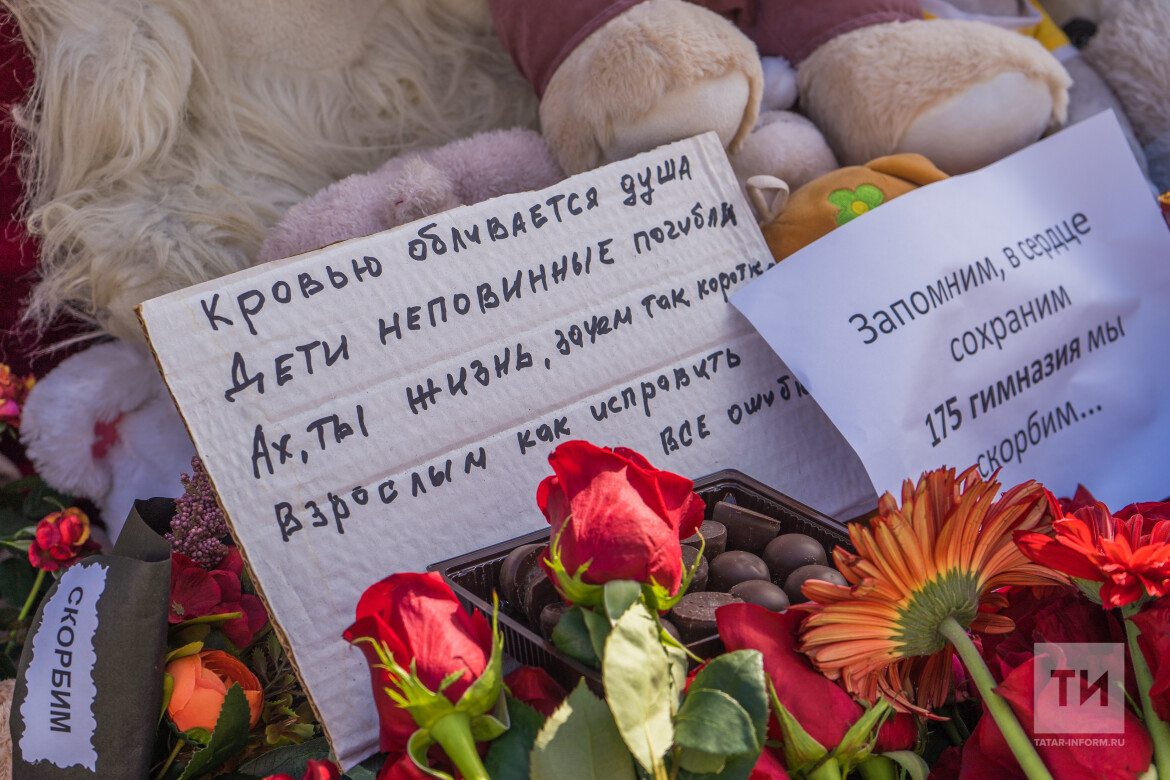 Кровью обливается душа
Дети неповинные погибли
Ах, ты жизнь, зачем так коротка
Взрослым как исправить
все ошибки
Запомним, в сердце
сохраним
175 гимназия мы
скорбим...
СКОРБИМ
ТИ
TATAR-INFORM.RU